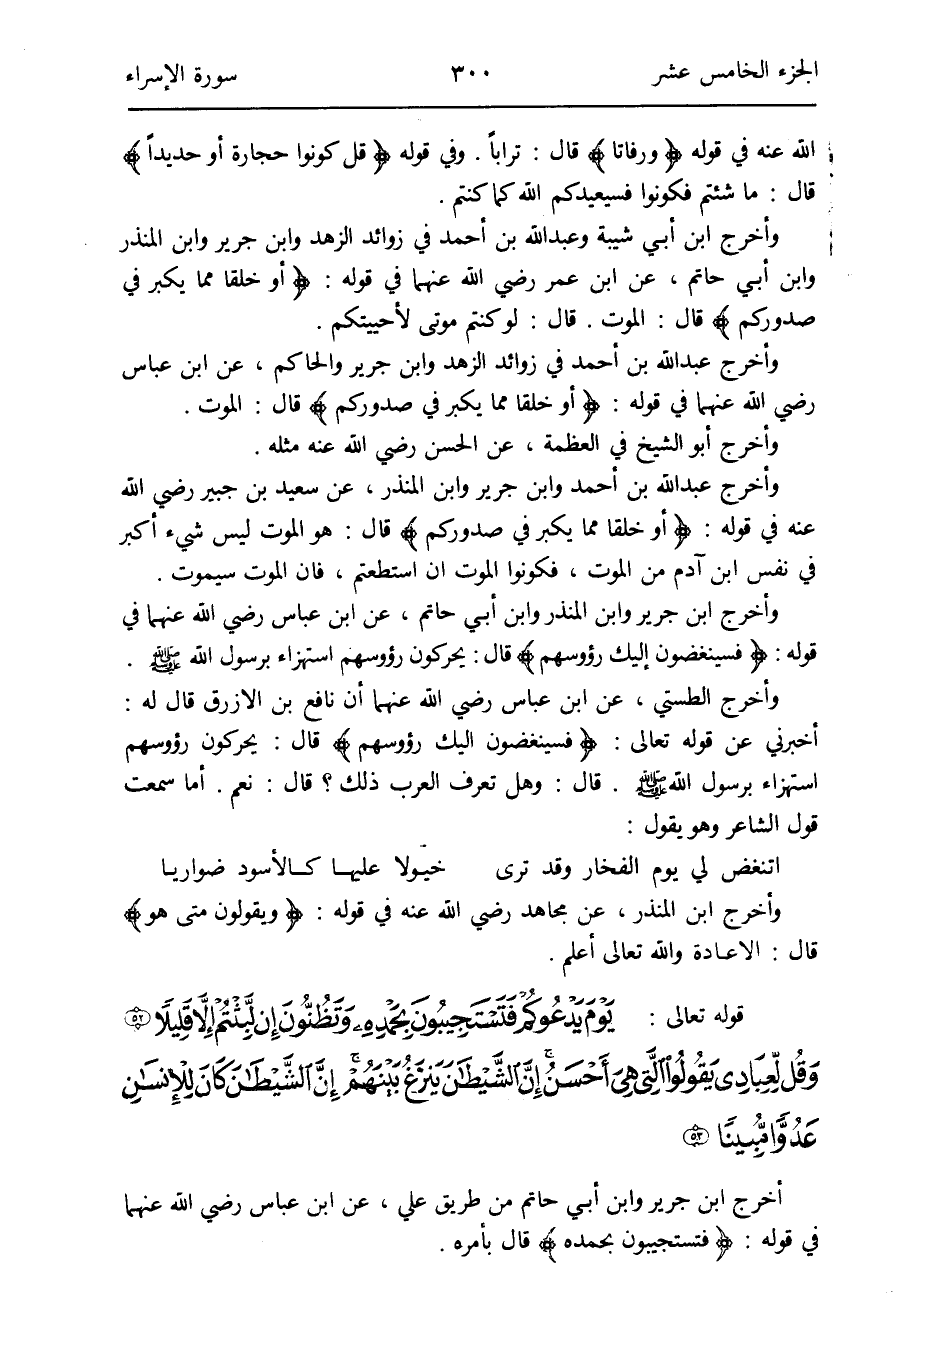 الجزء الخامس عشر ٣٠٠ سورة الإسراء
الله عنه في قوله ﴿ ورفاتا ﴾ قال : تراباً . وفي قوله ﴿ قل كونوا حجارة أو حديداً ﴾
قال : ما شئتم فكونوا فسيعيدكم الله كما كنتم .
وأخرج ابن أبي شيبة وعبدالله بن أحمد في زوائد الزهد وابن جرير وابن المنذر
وابن أبي حاتم ، عن ابن عمر رضي الله عنهما في قوله : ﴿ أو خلقا مما يكبر في
صدوركم ﴾ قال : الموت . قال : لو كنتم موتى لأحييتكم .
وأخرج عبدالله بن أحمد في زوائد الزهد وابن جرير والحاكم ، عن ابن عباس
رضي الله عنهما في قوله : ﴿ أو خلقا مما يكبر في صدوركم ﴾ قال : الموت .
وأخرج أبو الشيخ في العظمة ، عن الحسن رضي الله عنه مثله .
وأخرج عبدالله بن أحمد وابن جرير وابن المنذر ، عن سعيد بن جبير رضي الله
عنه في قوله : ﴿ أو خلقا مما يكبر في صدوركم ﴾ قال : هو الموت ليس شيء أكبر
في نفس ابن آدم من الموت ، فكونوا الموت ان استطعتم ، فان الموت سيموت .
وأخرج ابن جرير وابن المنذر وابن أبي حاتم ، عن ابن عباس رضي الله عنهما في
قوله : ﴿ فسينغضون إليك رؤوسهم ﴾ قال : يحركون رؤوسهم استهزاء برسول الله ﷺ .
وأخرج الطستي ، عن ابن عباس رضي الله عنهما أن نافع بن الازرق قال له :
أخبرني عن قوله تعالى : ﴿ فسينغضون اليك رؤوسهم ﴾ قال : يحركون رؤوسهم
استهزاء برسول الله ﷺ . قال : وهل تعرف العرب ذلك ؟ قال : نعم . أما سمعت
قول الشاعر وهو يقول :
اتنغض لي يوم الفخار وقد ترى خيولا عليها كالأسود ضواريا
وأخرج ابن المنذر ، عن مجاهد رضي الله عنه في قوله : ﴿ ويقولون متى هو ﴾
قال : الاعادة والله تعالى أعلم .
قوله تعالى : يَوْمَ يَدْعُوكُمْ فَتَسْتَجِيبُونَ بِحَمْدِهِۦ وَتَظُنُّونَ إِن لَّبِثْتُمْ إِلَّا قَلِيلًا ۝٥٢
وَقُل لِّعِبَادِى يَقُولُوا۟ ٱلَّتِى هِىَ أَحْسَنُ ۚ إِنَّ ٱلشَّيْطَـٰنَ يَنزَغُ بَيْنَهُمْ ۚ إِنَّ ٱلشَّيْطَـٰنَ كَانَ لِلْإِنسَـٰنِ
عَدُوًّا مُّبِينًا ۝٥٣
أخرج ابن جرير وابن أبي حاتم من طريق علي ، عن ابن عباس رضي الله عنهما
في قوله : ﴿ فتستجيبون بحمده ﴾ قال بأمره .